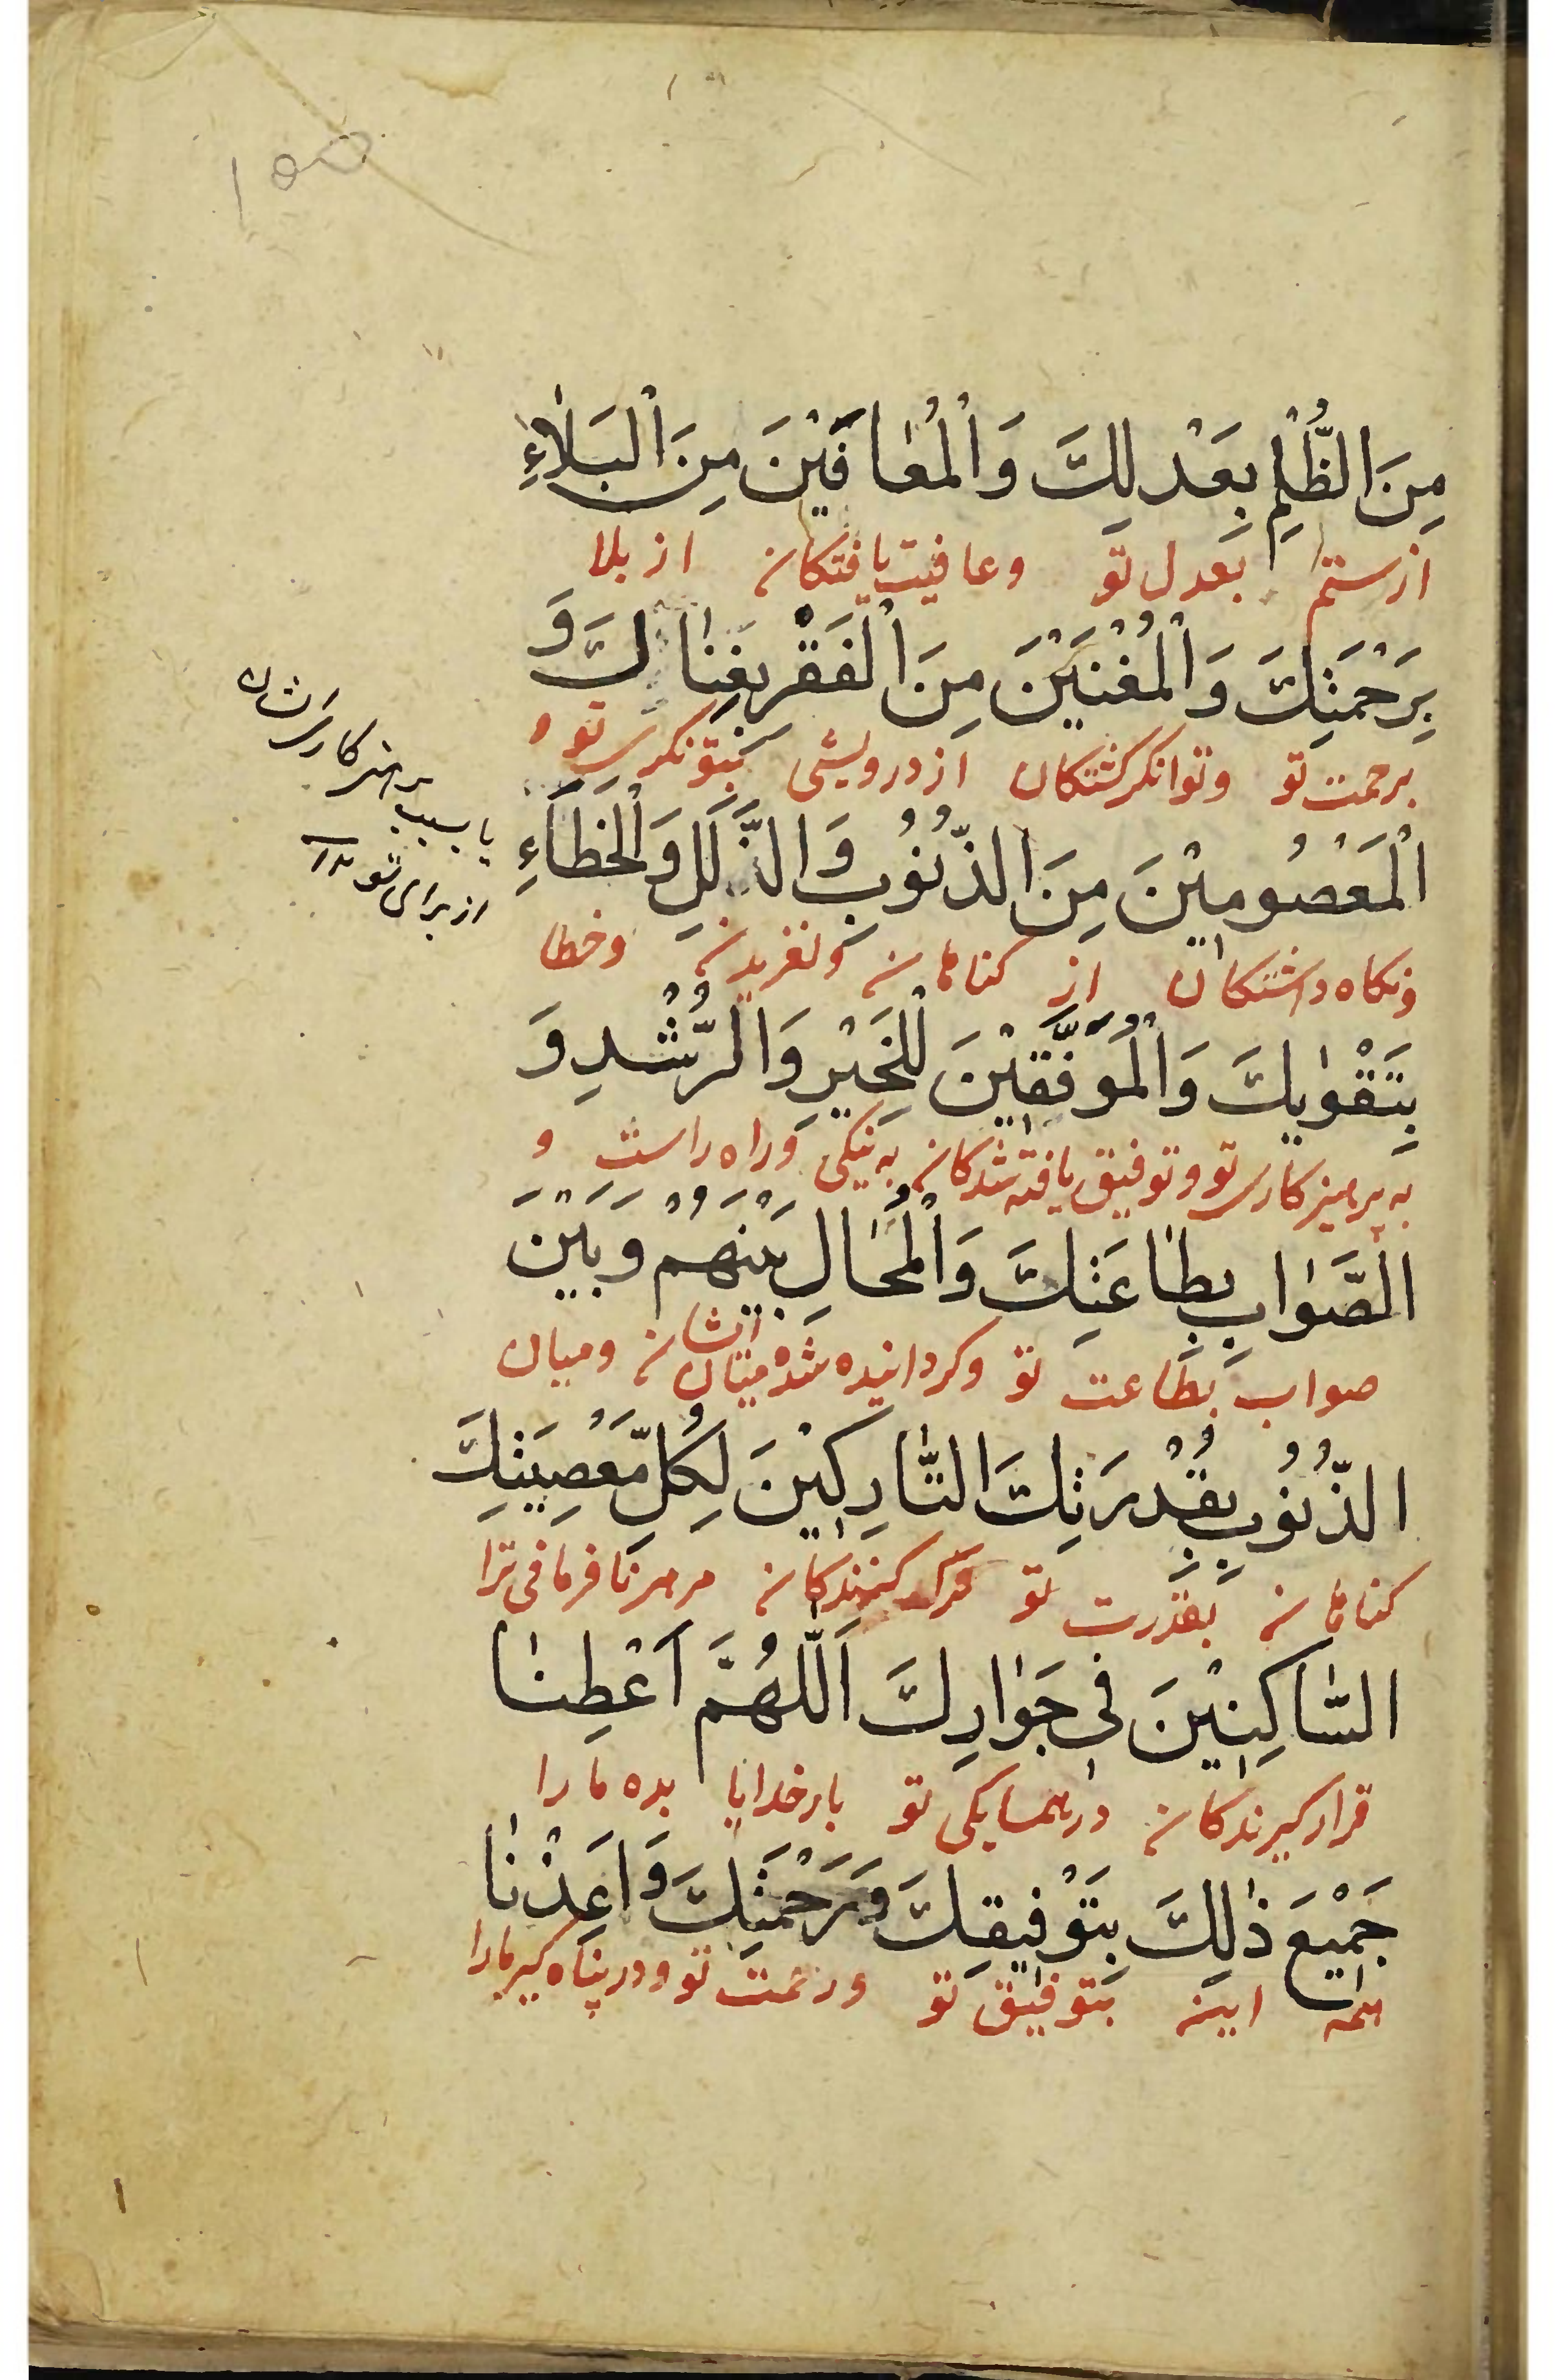 ۱۵۵
مِنَ الظُّلْمِ بِعَدْلِكَ وَالْمُعٰافَيْنَ مِنَ الْبَلٰاءِ
از ستم بعدل تو وعافیت یافتکان از بلا
بِرَحْمَتِكَ وَالْمُغْنَيْنَ مِنَ الْفَقْرِ بِغِنٰاكَ وَ
برحمت تو وتوانکر کشتکان از درویشی بتونکری تو و
الْمَعْصُومِيْنَ مِنَ الذُّنُوْبِ وَالزَّلَلِ وَالْخَطَاءِ
ونکاه داشتکان از کناهان ولغزیدن وخطا
بِتَقْوٰيكَ وَالْمُوَفَّقِيْنَ لِلْخَيْرِ وَالرُّشْدِ وَ
به پرهیزکاری تو وتوفیق یافته شدکان به نیکی وراه راست و
الصَّوٰابِ بِطٰاعَتِكَ وَالْمُحٰالِ بَيْنَهُمْ وَبَيْنَ
صواب بطاعت تو وکردانیده شده میان ایشان ومیان
الذُّنُوْبِ بِقُدْرَتِكَ التّٰارِكِيْنَ لِكُلِّ مَعْصِيَتِكَ
کناهان بقدرت تو ترک کنندکان مر هر نافرمانی ترا
السّٰاكِنِيْنَ فِي جَوٰارِكَ اَللّٰهُمَّ اَعْطِنٰا
قرار کیرندکان در همسایکی تو بار خدایا بده ما را
جَمْيعَ ذٰلِكَ بِتَوْفيقِكَ وَرَحْمَتِكَ وَاَعِذْنٰا
همه این بتوفیق تو ورحمت تو ودر پناه کیر ما را
یا بسبب پرهیز کاریشان
از برای تو